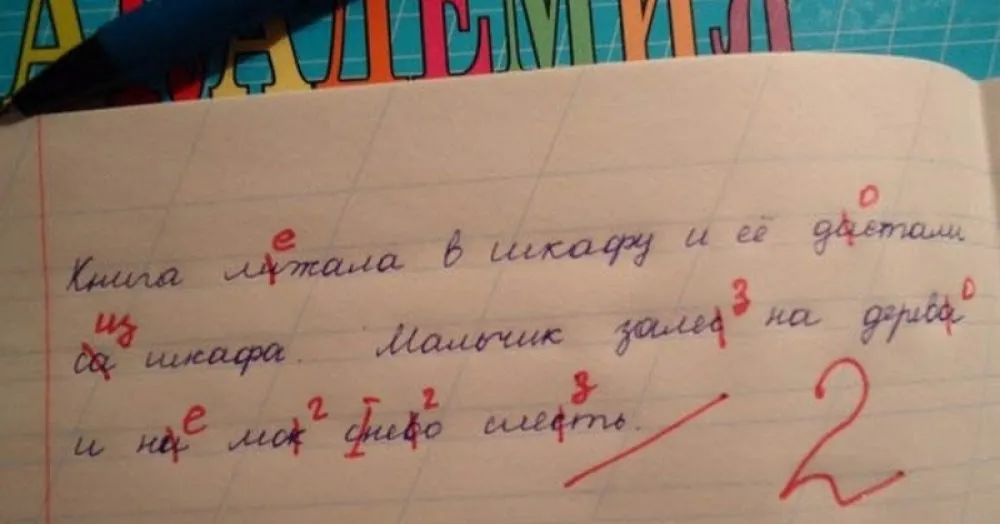 АКАДЕМИЯ
е о
Книга лижала в шкафу и её дастали
из з о
са шкафа. Мальчик залес на дерева
е г I г з
и на мок снево слесть. 2